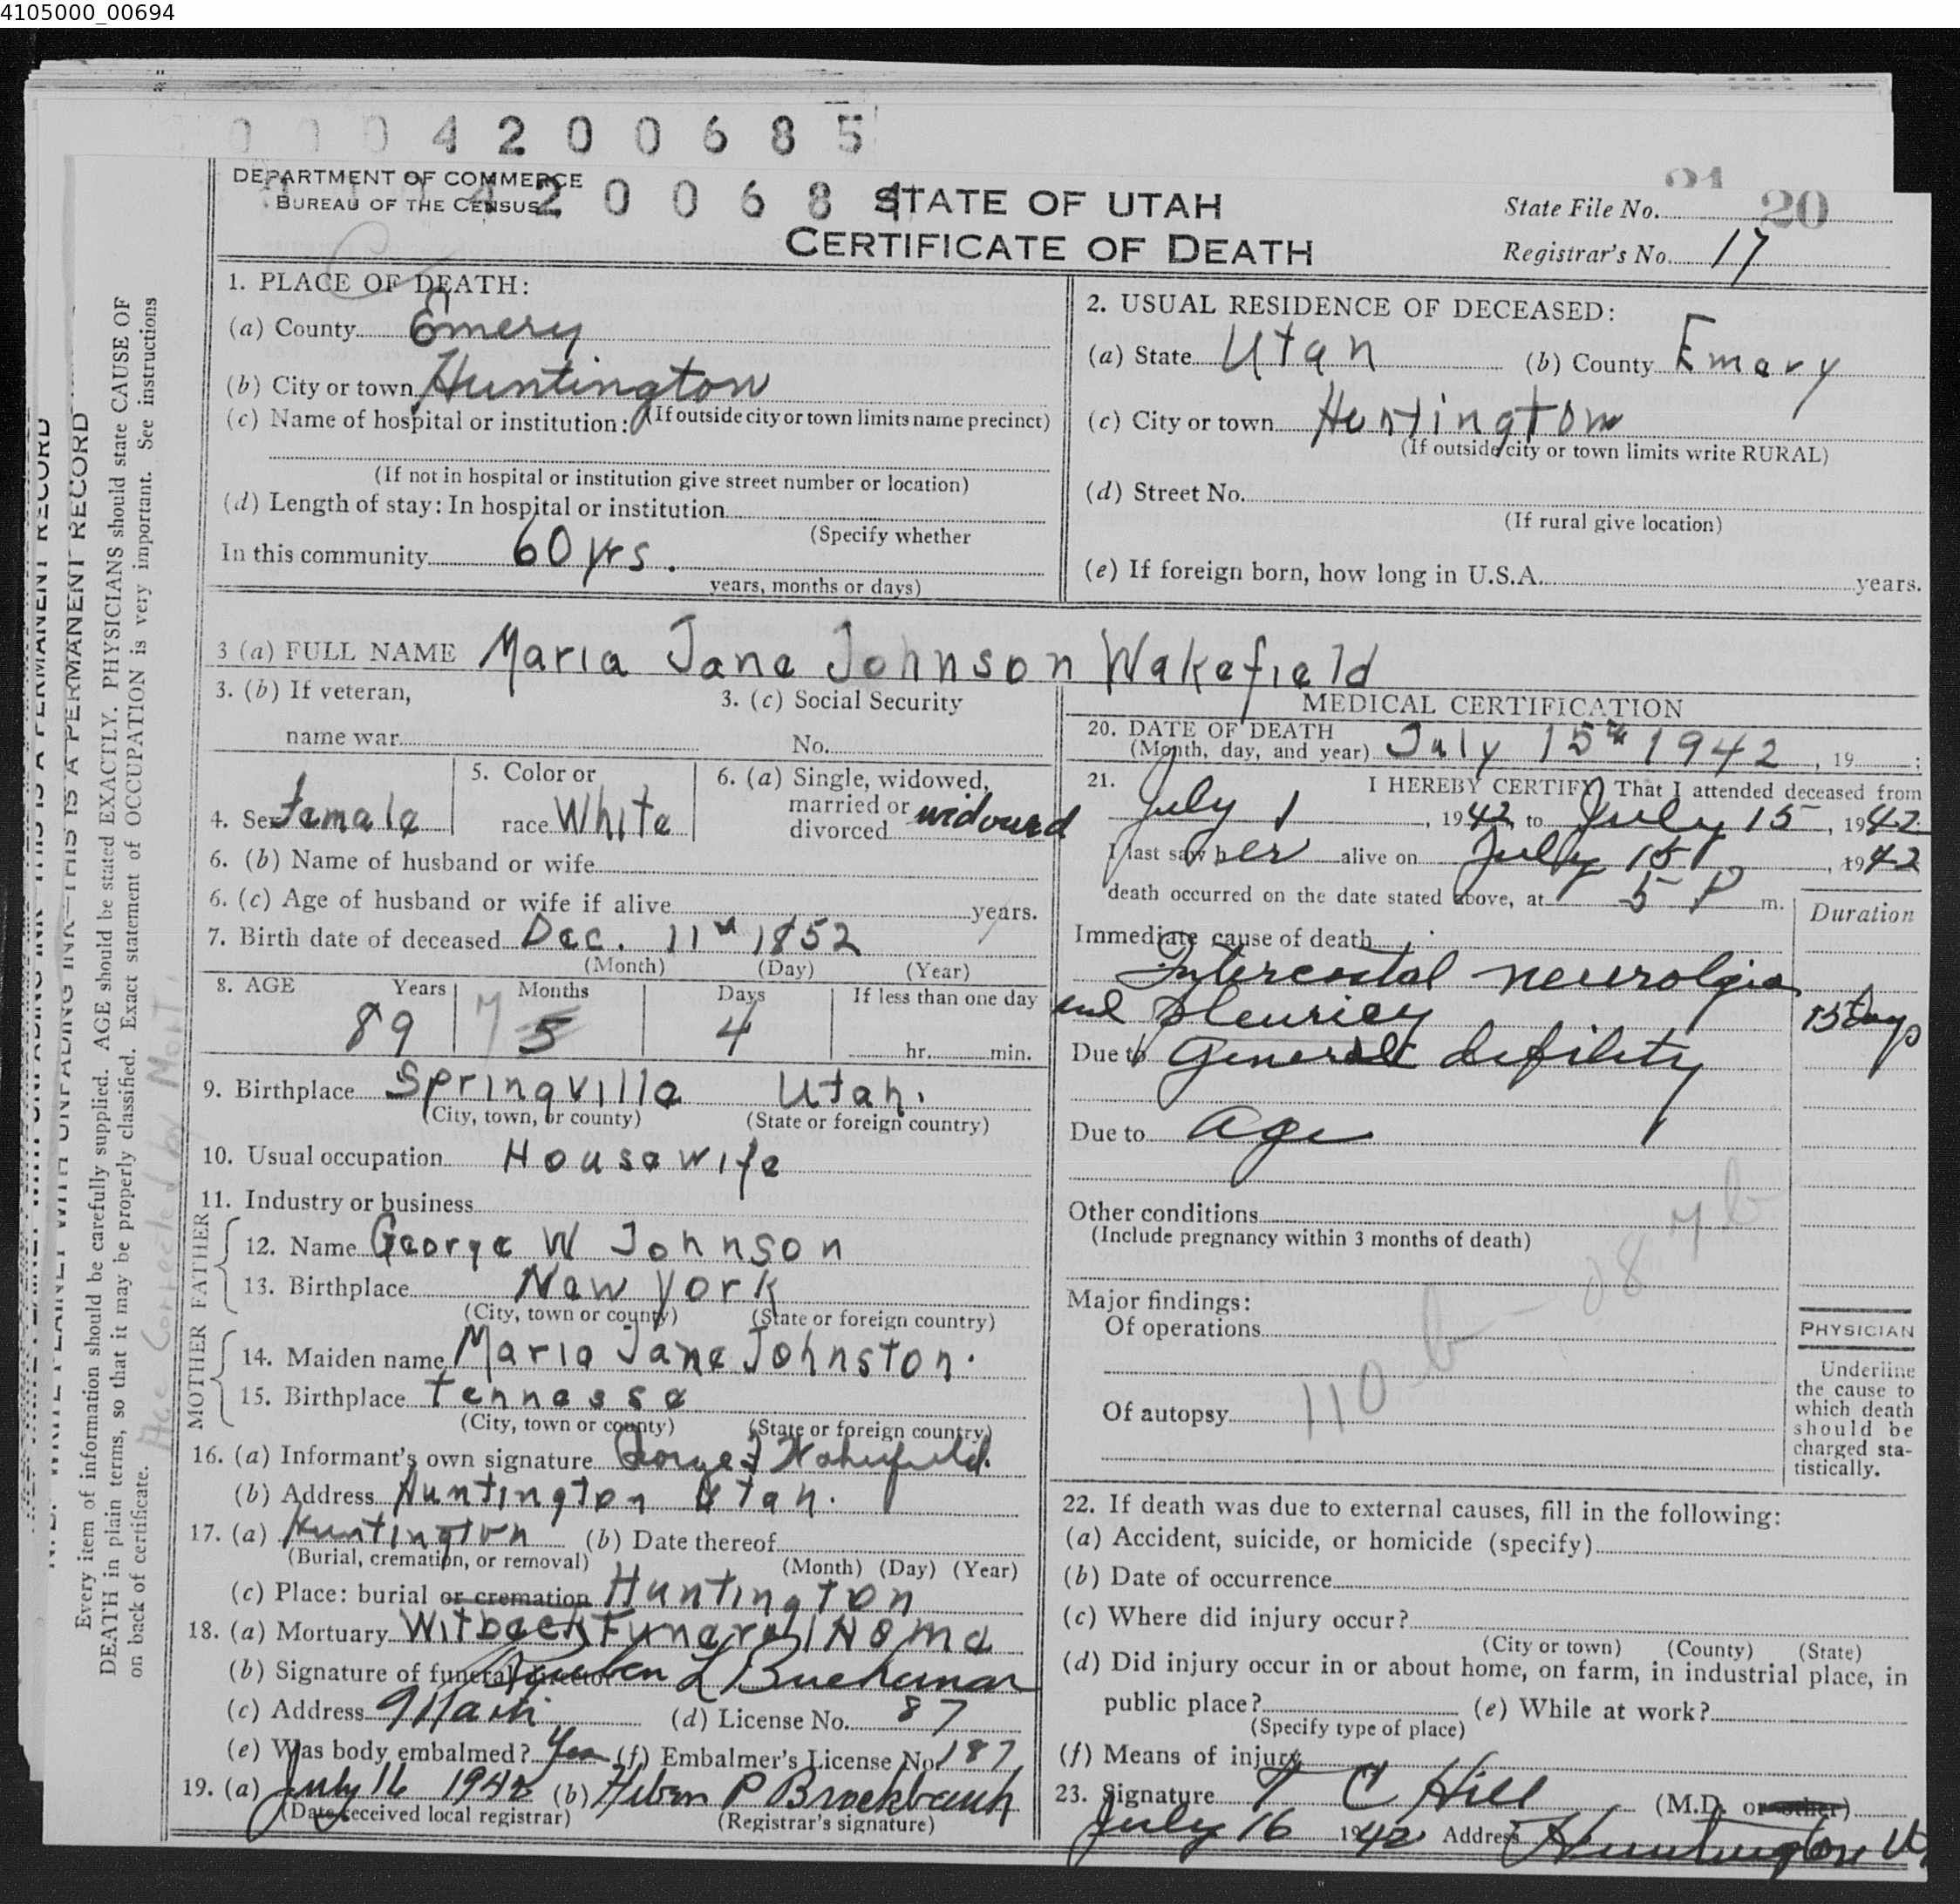 4105000_00694
0 0 0 4 2 0 0 6 8 5
DEPARTMENT OF COMMERCE
BUREAU OF THE CENSUS
4 2 0 0 6 8 4
STATE OF UTAH
CERTIFICATE OF DEATH
State File No. 20
21
Registrar's No. 17
1. PLACE OF DEATH:
(a) County Emery
(b) City or town Huntington
(If outside city or town limits name precinct)
(c) Name of hospital or institution:
(If not in hospital or institution give street number or location)
(d) Length of stay: In hospital or institution
(Specify whether
In this community 60 yrs.
years, months or days)
2. USUAL RESIDENCE OF DECEASED:
(a) State Utah (b) County Emery
(c) City or town Huntington
(If outside city or town limits write RURAL)
(d) Street No.
(If rural give location)
(e) If foreign born, how long in U.S.A. years.
3 (a) FULL NAME Maria Jane Johnson Wakefield
3. (b) If veteran, 3. (c) Social Security
name war No.
4. Sex female 5. Color or race White 6. (a) Single, widowed, married or divorced widowed
6. (b) Name of husband or wife
6. (c) Age of husband or wife if alive years.
7. Birth date of deceased Dec. 11 1852
(Month) (Day) (Year)
8. AGE Years Months Days If less than one day
89 7 5 4 hr. min.
9. Birthplace Springville Utah.
(City, town, or county) (State or foreign country)
10. Usual occupation Housewife
11. Industry or business
FATHER
12. Name George W Johnson
13. Birthplace New York
(City, town or county) (State or foreign country)
MOTHER
14. Maiden name Maria Jane Johnston.
15. Birthplace Tennesse
(City, town or county) (State or foreign country)
16. (a) Informant's own signature George Wakefield.
(b) Address Huntington Utah.
17. (a) Huntington (b) Date thereof
(Burial, cremation, or removal) (Month) (Day) (Year)
(c) Place: burial or cremation Huntington
18. (a) Mortuary Witbeck Funeral Home
(b) Signature of funeral director L Buchanan
(c) Address (d) License No. 87
(e) Was body embalmed? Yes (f) Embalmer's License No. 187
19. (a) July 16 1942 (b) P Brockbank
(Date received local registrar) (Registrar's signature)
MEDICAL CERTIFICATION
20. DATE OF DEATH
(Month, day, and year) July 15th 1942, 19 ;
21. I HEREBY CERTIFY, That I attended deceased from
July 1, 1942, to July 15, 1942
I last saw her alive on July 15, 1942
death occurred on the date stated above, at 5 P m.
Duration
Immediate cause of death
Intercostal neurolgia
and pleuricy 15 Days
Due to General defility
Due to age
Other conditions
(Include pregnancy within 3 months of death)
Major findings:
Of operations
110-b
Of autopsy
PHYSICIAN
Underline
the cause to
which death
should be
charged sta-
tistically.
22. If death was due to external causes, fill in the following:
(a) Accident, suicide, or homicide (specify)
(b) Date of occurrence
(c) Where did injury occur?
(City or town) (County) (State)
(d) Did injury occur in or about home, on farm, in industrial place, in
public place? (e) While at work?
(Specify type of place)
(f) Means of injury
23. Signature T C Hill (M.D. or other)
July 16 1942 Address Huntington
THIS IS A PERMANENT RECORD
N. B. WRITE PLAINLY WITH UNFADING INK—THIS IS A PERMANENT RECORD
Every item of information should be carefully supplied. AGE should be stated EXACTLY. PHYSICIANS should state CAUSE OF
DEATH in plain terms, so that it may be properly classified. Exact statement of OCCUPATION is very important. See instructions
on back of certificate.
Age Corrected by Mort.